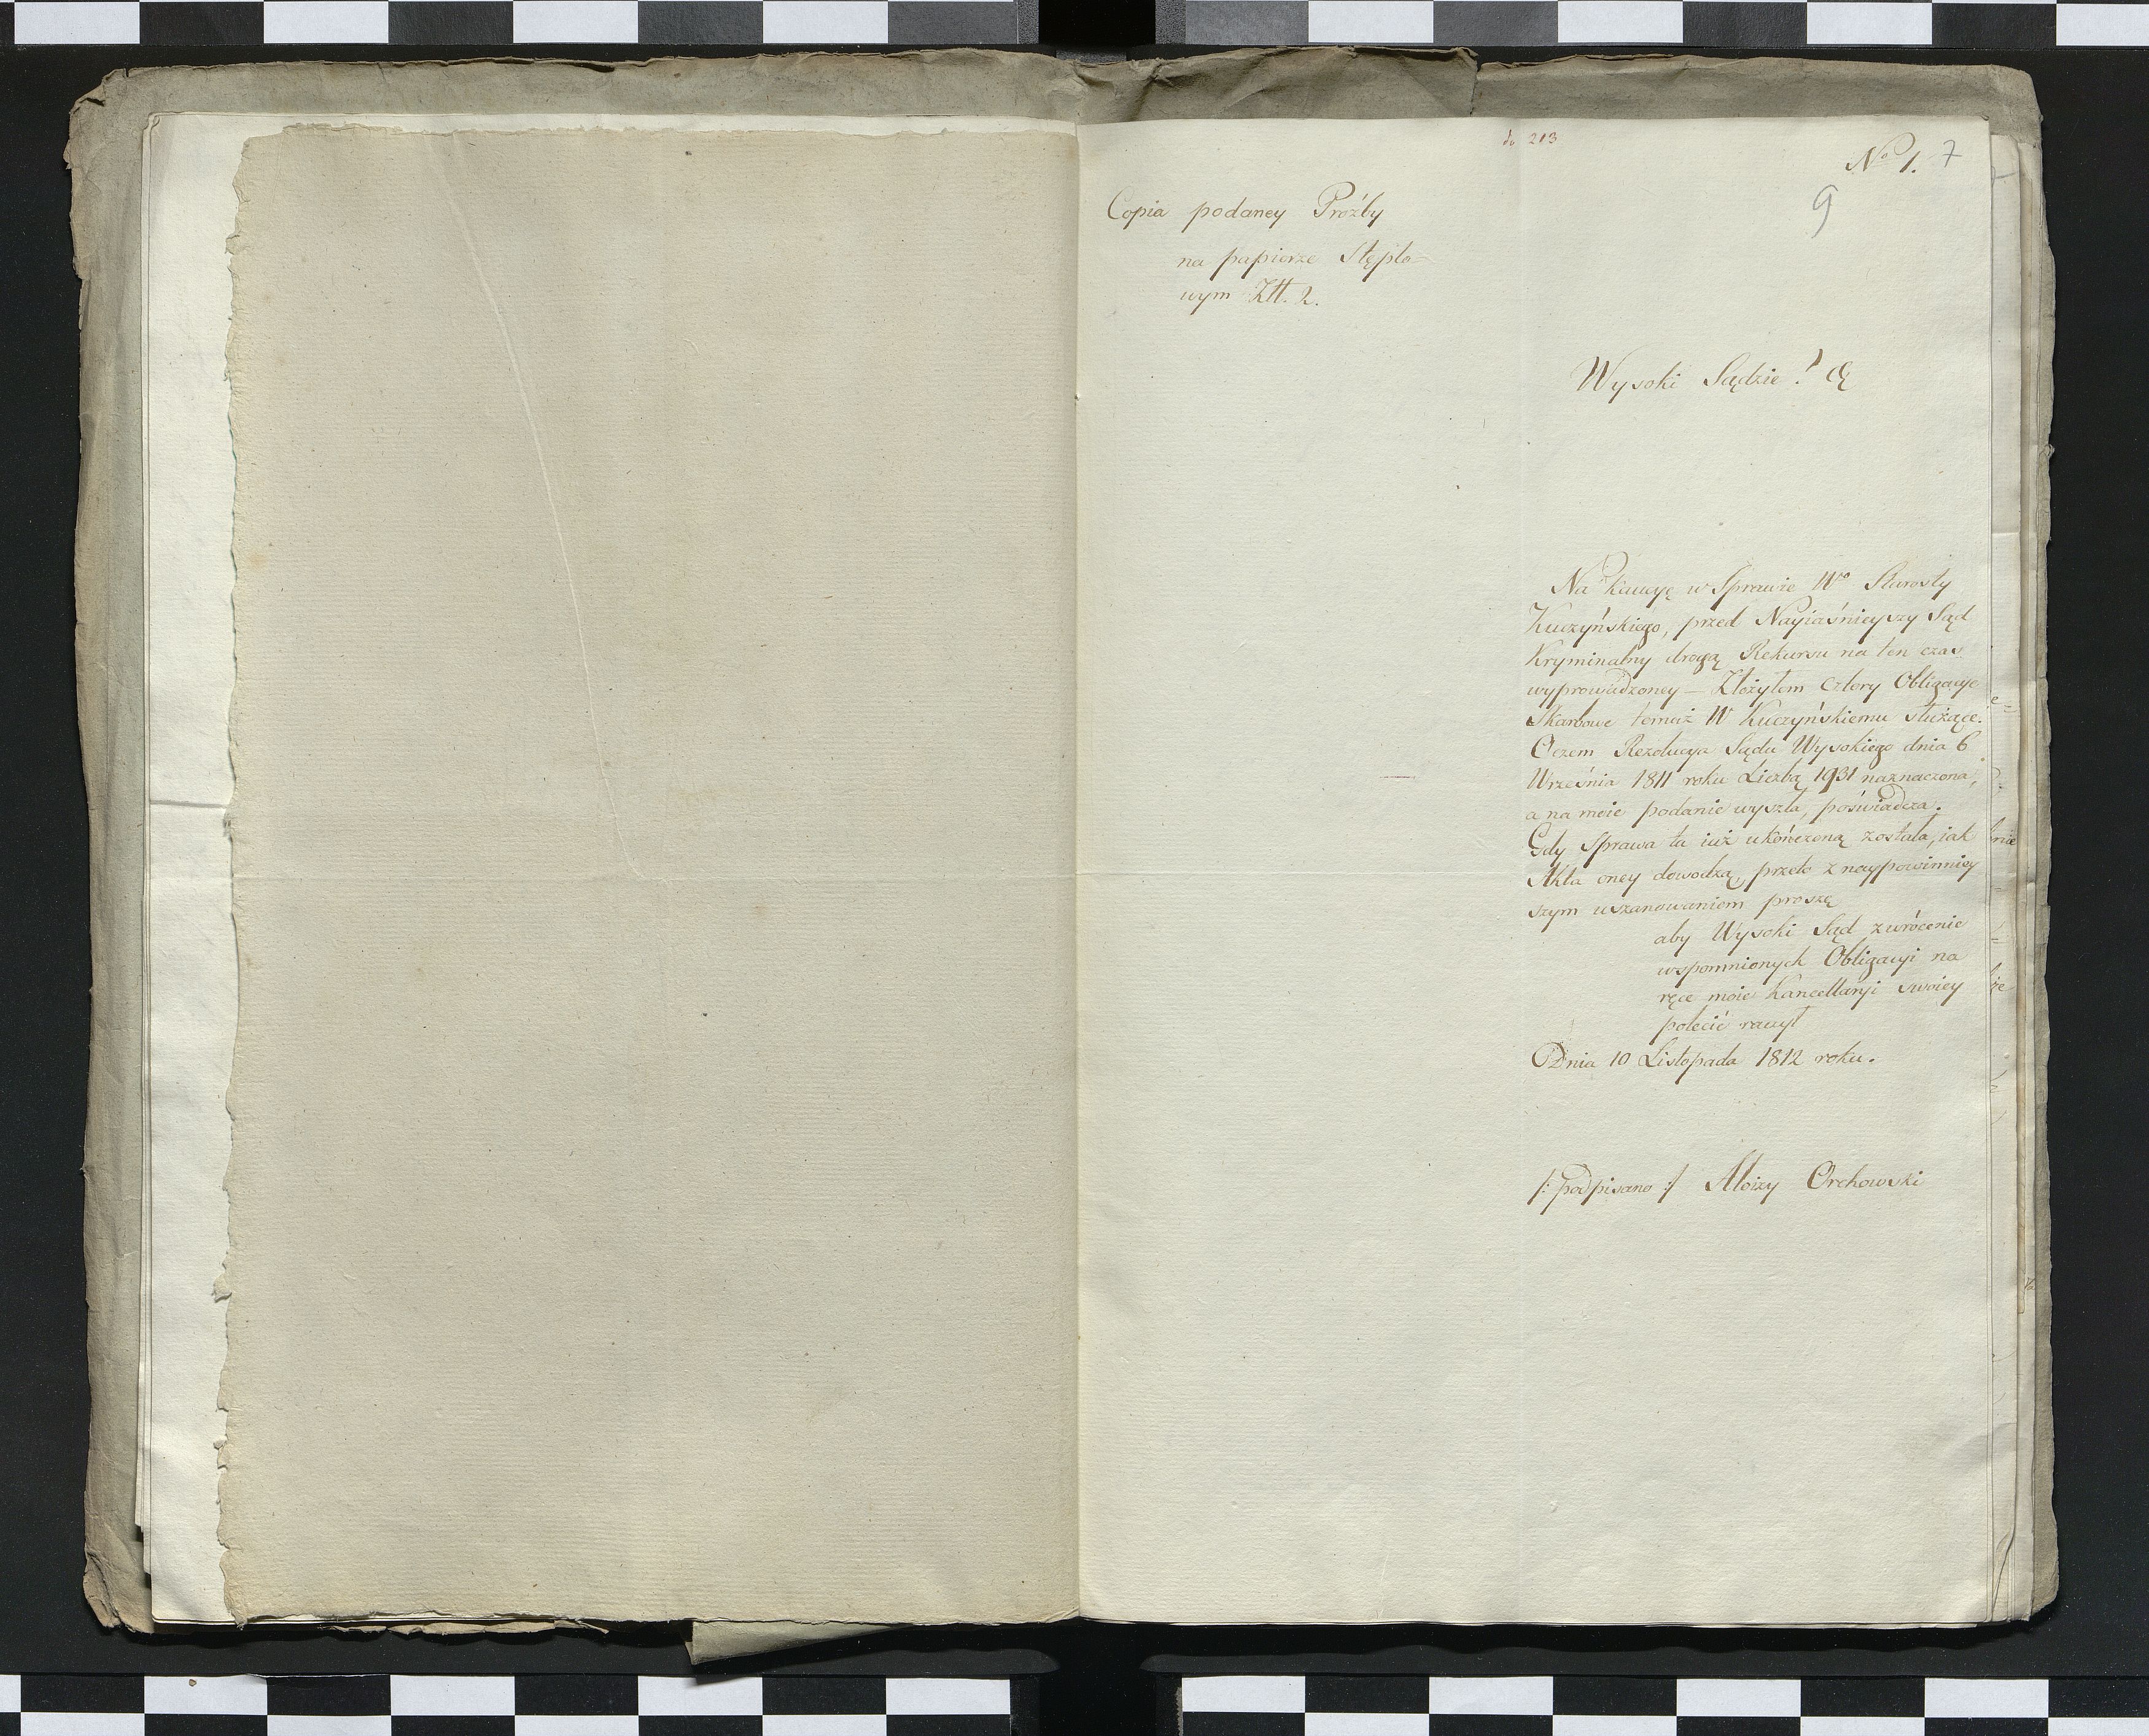 do 213
No 1. 7
9
Copia podaney Proźby
na papierze Stęplo=
wym Złt. 2.
Wysoki Sądzie!
Na kaucyę w Sprawie Wo Starosty
Kuczyńskiego, przed Nayiaśnieyszy Sąd
Kryminalny drogą Rekursu na ten czas
wyprowadzoney — Złożyłem cztery Obligacye
Skarbowe temuż W Kuczyńskiemu służące.
O czem Rezolucya Sądu Wysokiego dnia 6
Września 1811 roku Liczbą 1931 naznaczona,
a na moie podanie wyszła, poświadcza.
Gdy Sprawa ta iuż ukończoną została, iak
Akta oney dowodzą, przeto z naypowinniey
szym uszanowaniem proszę
aby Wysoki Sąd zwrócenie
wspomnionych Obligacyi na
ręce moie Kancellaryi swoiey
polecić raczył
Dnia 10 Listopada 1812 roku.
/: podpisano :/ Aloizy Orchowski